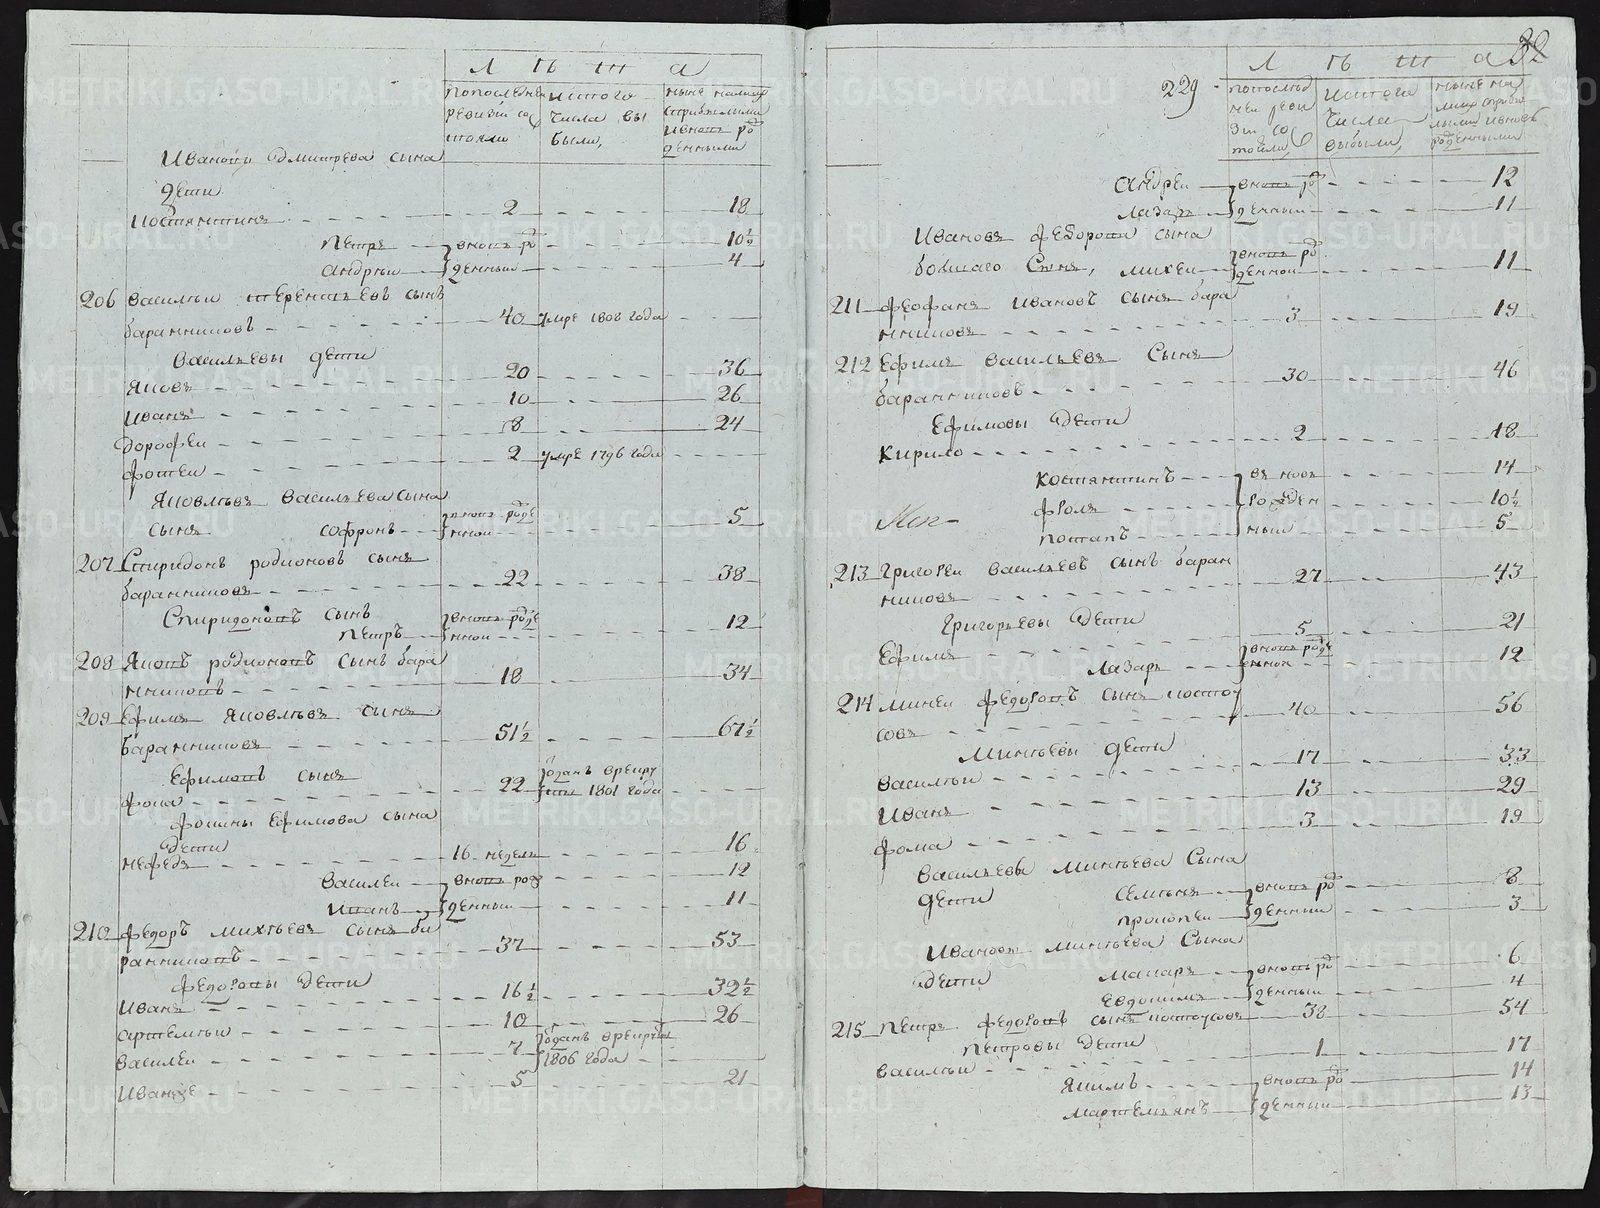 Лѣта
попоследней ревизiи состояло
исъ того числа выбыли,
ныне налицо сприбылыми ивновь рожденными
Ивановы Дмитрева сына
дети
костянтинъ 2 18
петръ вновь ро 10½
андрѣи жденныи 4
206 василѣи терентьевъ сынъ
баранниковъ 40 умре 1808 года
васильевы дети
яковъ 20 36
иванъ 10 26
дорофеи 8 24
фотеи 2 умре 1796 года
яковлѣвъ васильева сына
сынъ софронъ вновь рожденнои 5
207 Спиридонъ родионовъ сынъ
баранниковъ 22 38
Спиридоновъ сынъ
петръ вновь рожденнои 12
208 яковъ родионовъ сынъ бара
нниковъ 18 34
209 ефимъ яковлѣвъ сынъ
баранниковъ 51½ 67½
Ефимовъ сынъ
фока 22 отданъ врекруты 1801 года
фокины Ефимова сына
дети
мефедъ 16 недель 16
василеи вновь рож 12
иванъ денныи 11
210 федоръ михѣевъ сынъ ба
ранниковъ 37 53
федоровы дети
иванъ 16½ 32½
артемѣи 10 26
василеи 7 отданъ врекруты 1806 года
иванже 5 21
32
229
Лѣта
попослѣдней ревизiи состояли,
исъ того числа выбыли,
ныне налицо сприбылыми ивновь рожденными
андреи вновь ро 12
лазарь жденныи 11
Ивановъ федорова сына
большаго Сынъ, михеи вновь рожденнои 11
211 феофанъ ивановъ сынъ бара
нниковъ 3 19
212 Ефимъ васильевъ Сынъ
баранниковъ 30 46
Ефимовы дети
кирило 2 18
костянтинъ въ новь 14
фролъ рожден 10½
потапъ ныи 5
213 григореи васильевъ сынъ баран
никовъ 27 43
григорьевы дети
Ефимъ 5 21
лазарь вновь рожденнои 12
214 минеи федоровъ сынъ костоу
совъ 40 56
Минѣевы дети
василѣи 17 33
иванъ 13 29
фома 3 19
васильевы минѣева Сына
дети семѣнъ вновь ро 8
прокопеи жденныи 3
ивановы минѣева Сына
дети макаръ вновь ро 6
евдокимъ жденныи 4
215 петръ федоровъ сынъ костоусовъ 38 54
петровы дети
василѣи 1 17
якимъ вновь ро 14
мартемьянъ жденныи 13
METRIKI.GASO-URAL.RU